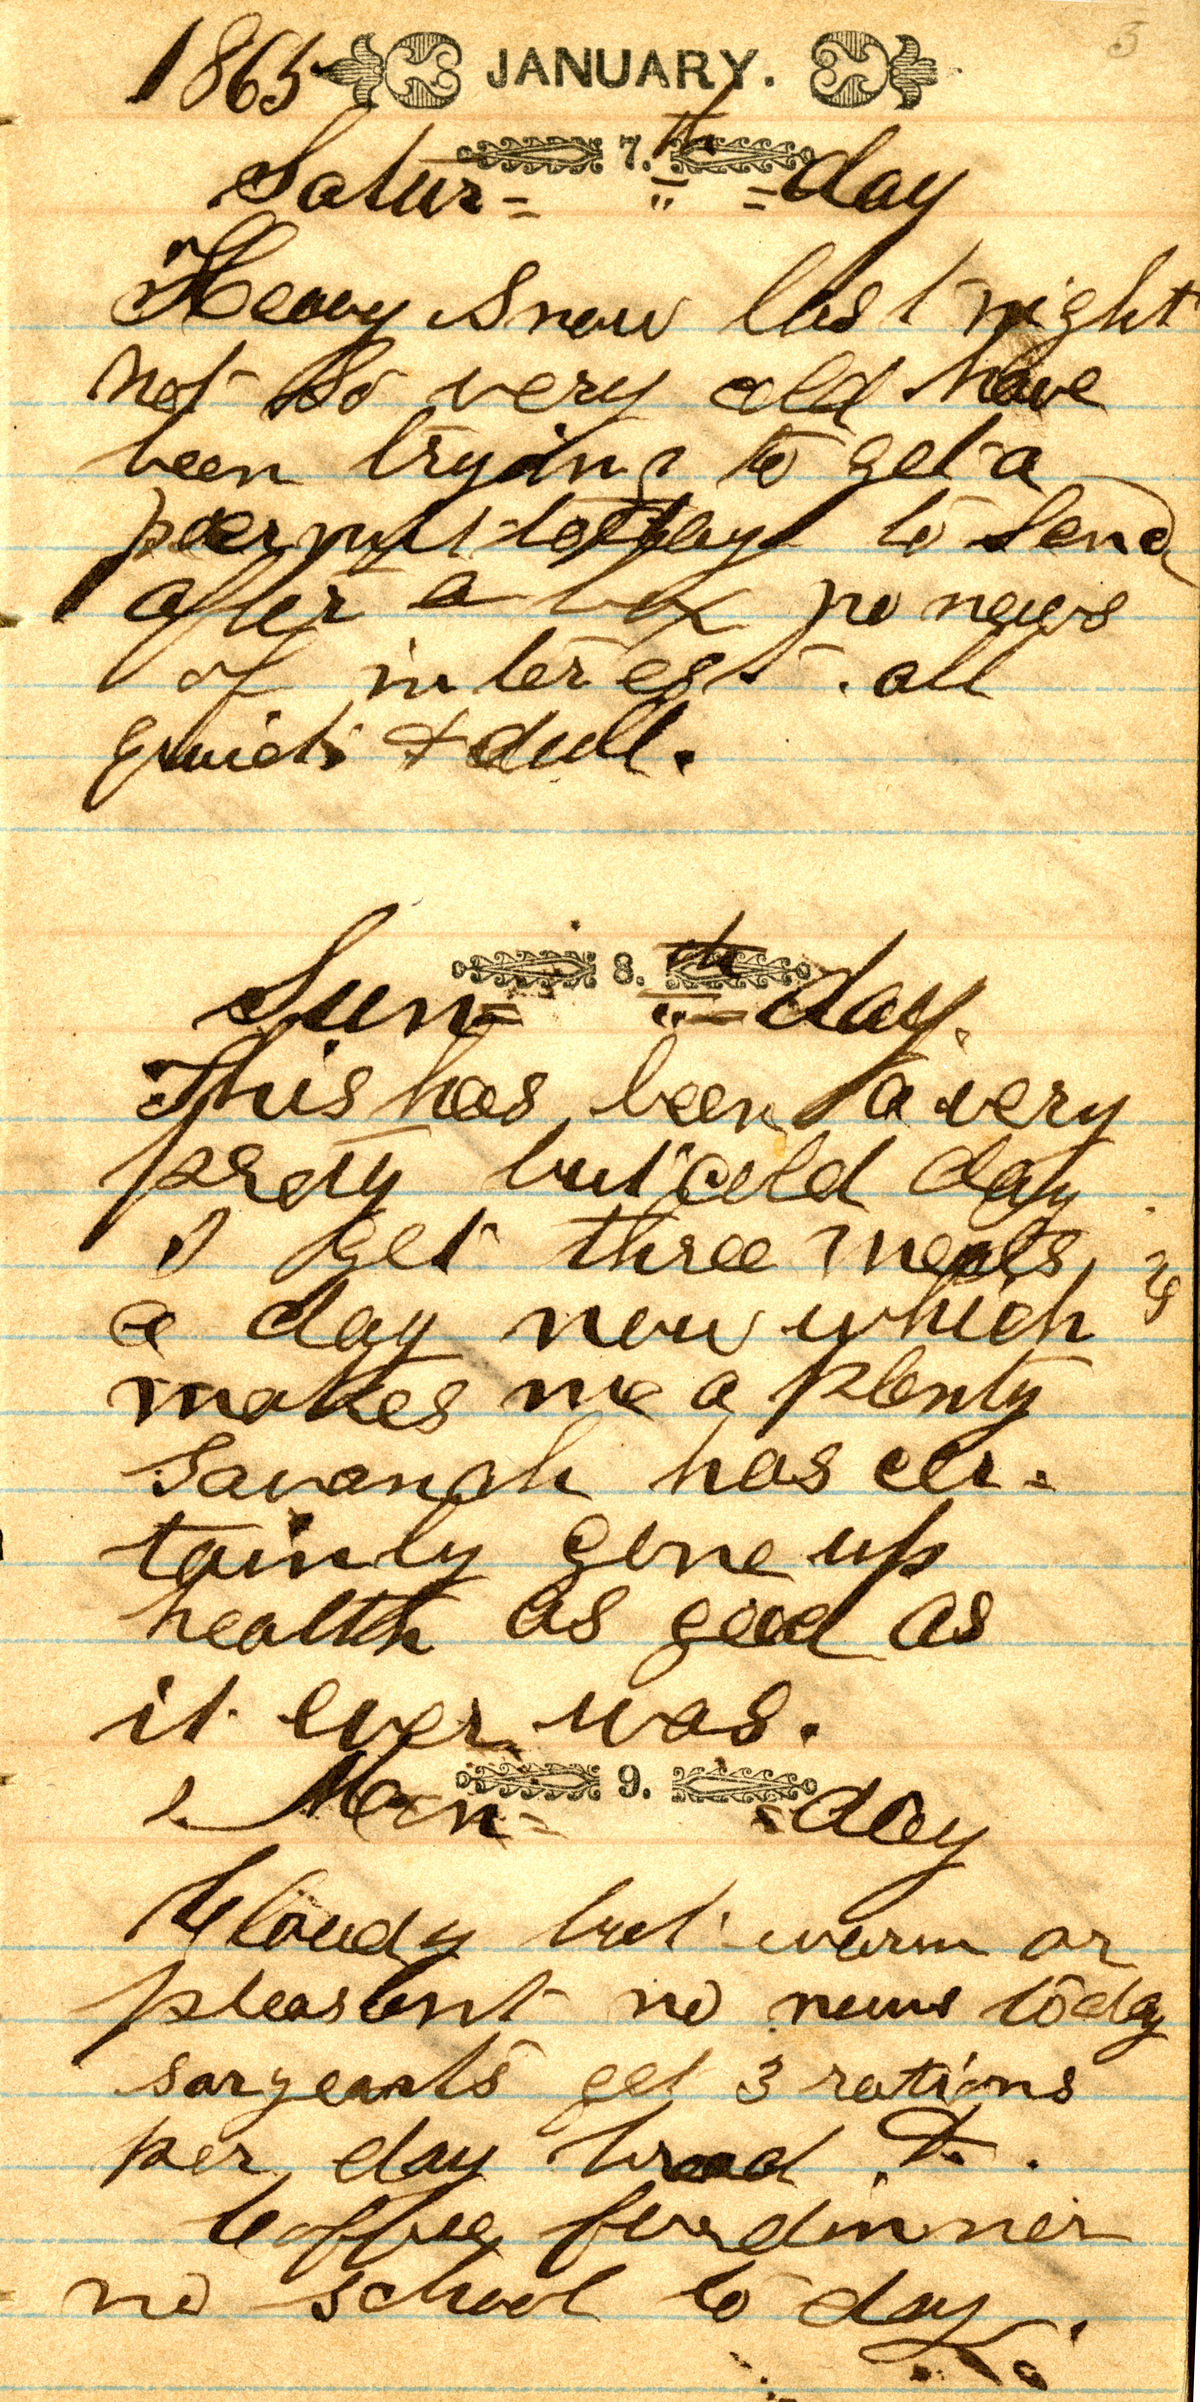 3
1865 JANUARY.
7.th
Satur= " =day
Heavy snow last night
not so very cold have
been trying to get a
permit today to send
after a box no news
of interest. all
quiet & dull.
8.th
Sun= " =day.
This has been a very
prety but cold day
I get three meals
a day now which
makes me a plenty
Savanah has cer=
tainly gone up
health as good as
it ever was.
9.
Mon= =day
Cloudy but warm or
pleasant no news today
sargeants get 3 rations
per day bread &.
Coffee for dinner
no school to day.